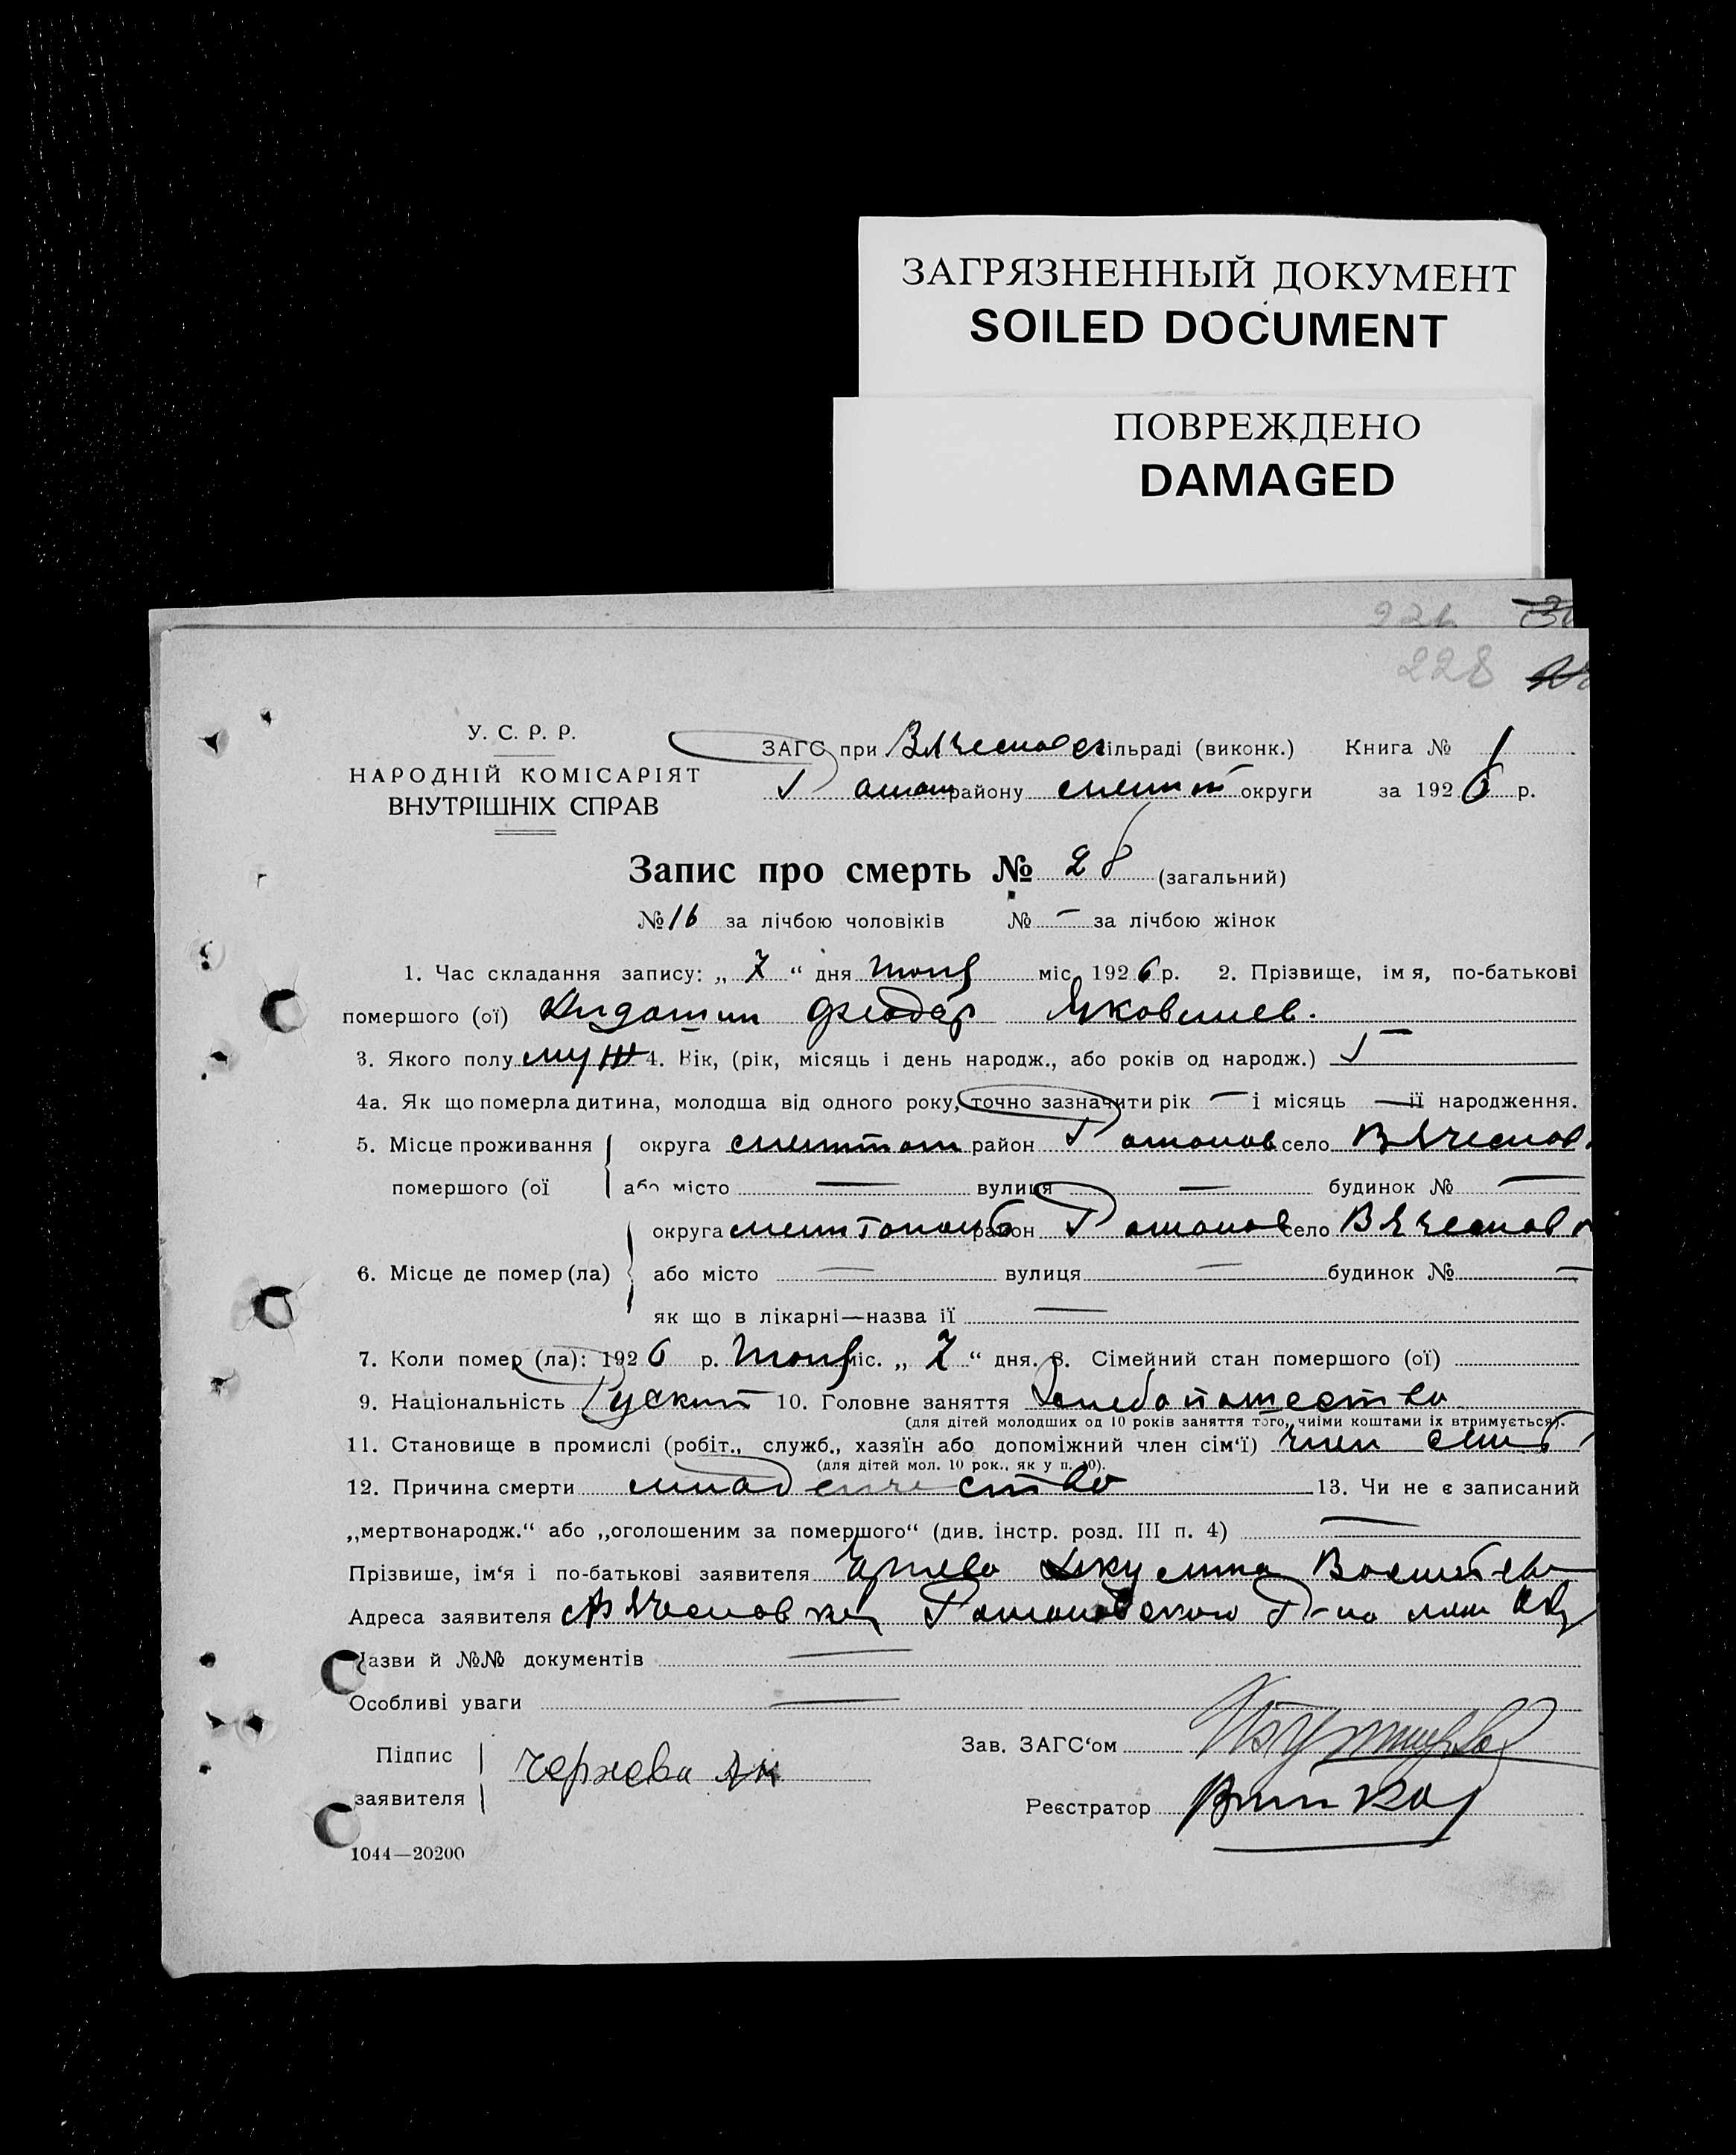 ЗАГРЯЗНЕННЫЙ ДОКУМЕНТ
SOILED DOCUMENT
ПОВРЕЖДЕНО
DAMAGED
228
У. С. Р. Р.
НАРОДНІЙ КОМІСАРІЯТ
ВНУТРІШНІХ СПРАВ
ЗАГС при Вячеслов сільраді (виконк.) Книга № 1
району округи за 1926 р.
Запис про смерть № 28 (загальний)
№ 16 за лічбою чоловіків № — за лічбою жінок
1. Час складання запису: „ 7 “ дня міс 1926 р. 2. Прізвище, імя, по-батькові
помершого (ої) Яковлев.
3. Якого полу муж 4. Вік, (рік, місяць і день народж., або років од народж.)
4а. Як що померла дитина, молодша від одного року, точно зазначити рік — і місяць — її народження.
5. Місце проживання округа район Романов село Вячеслов
помершого (ої або місто — вулиця — будинок № —
округа район Романов село Вячеслов
6. Місце де помер (ла) або місто — вулиця — будинок № —
як що в лікарні—назва її —
7. Коли помер (ла): 1926 р. міс. „ 7 “ дня. 8. Сімейний стан помершого (ої)
9. Національність Руский 10. Головне заняття хлебопашество
(для дітей молодших од 10 років заняття того, чиїми коштами їх втримується).
11. Становище в промислі (робіт., служб., хазяїн або допоміжний член сім‘ї) член сем
(для дітей мол. 10 рок., як у п. 10).
12. Причина смерти младенчество 13. Чи не є записаний
„мертвонародж.“ або „оголошеним за помершого“ (див. інстр. розд. III п. 4) —
Прізвише, ім‘я і по-батькові заявителя Акулина
Адреса заявителя Романовского Р-на
Назви й №№ документів —
Особливі уваги —
Підпис
заявителя
Зав. ЗАГС‘ом
Реєстратор
1044—20200